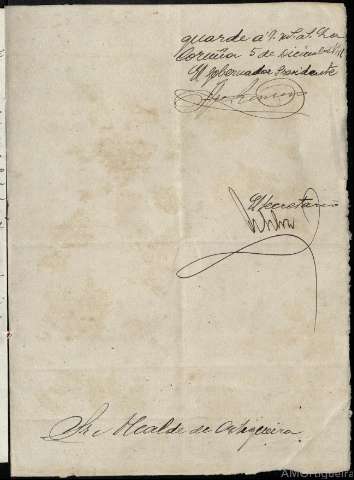 guarde a V. m.s a.s La
Coruña 5 de Diciembre
El gobernador Presidente
El Secretario
Sr. Alcalde de Ortigueira.
AMOrtigueira